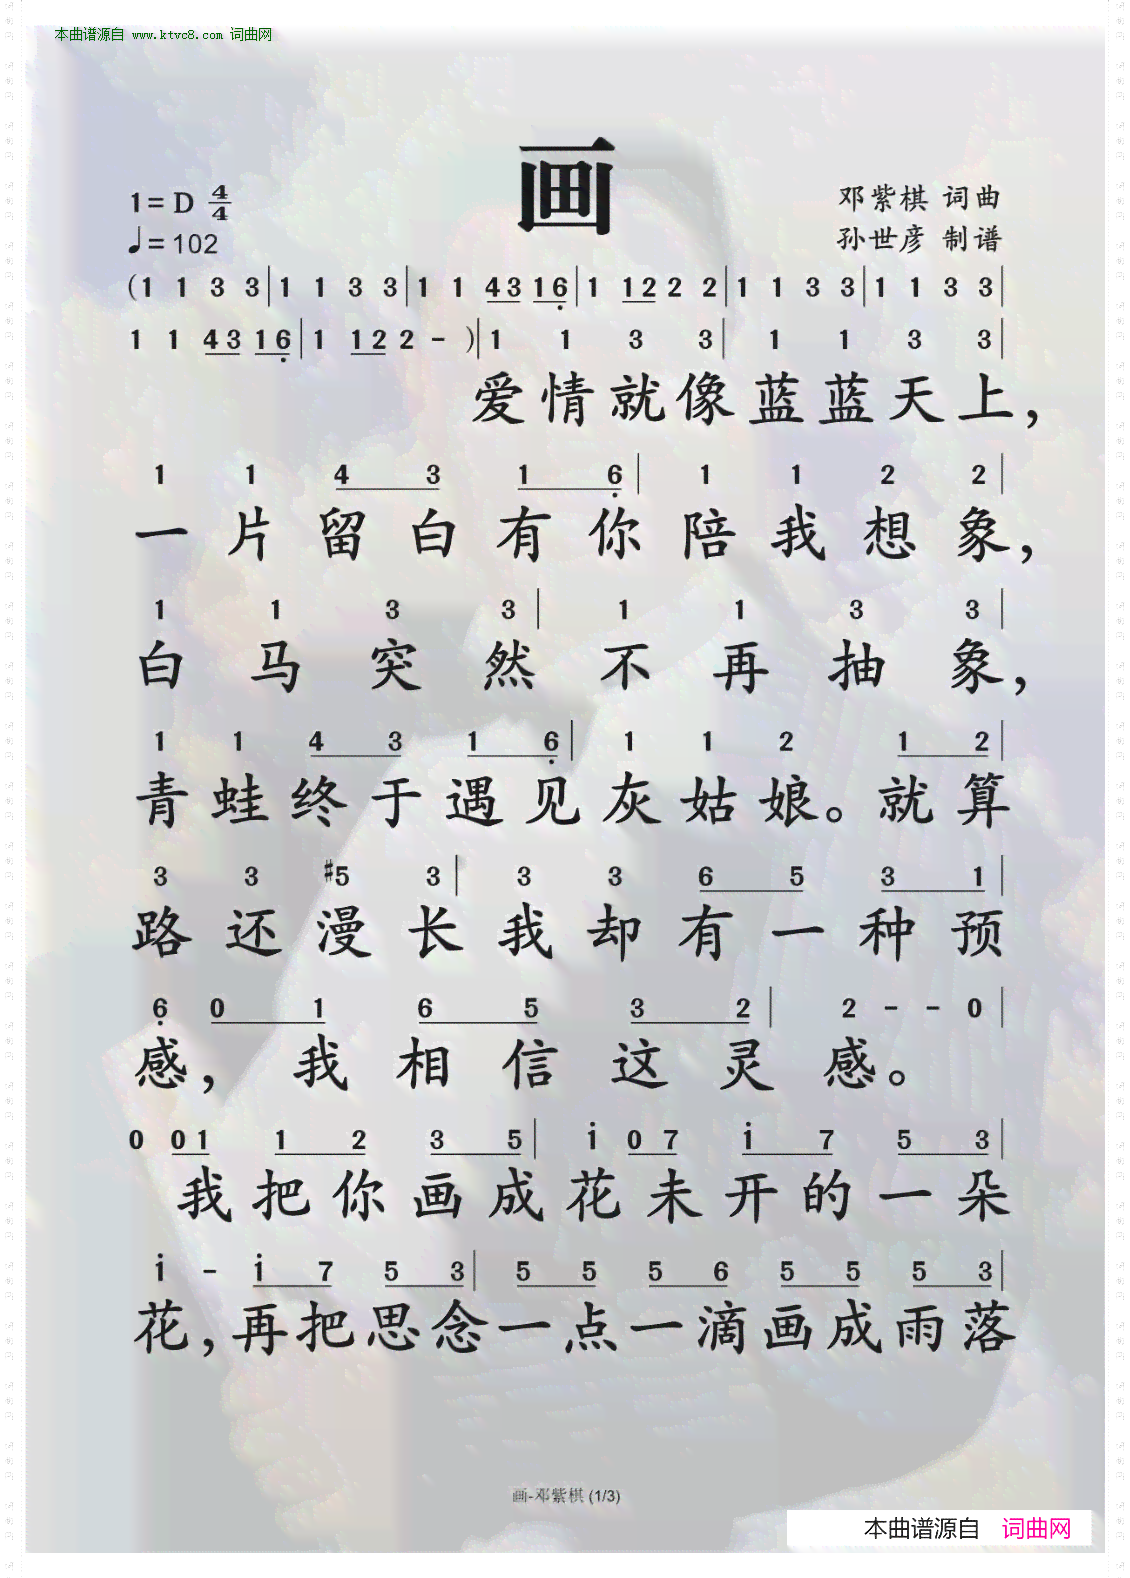 本曲谱源自 www.ktvc8.com 词曲网
画
1=D 4/4
邓紫棋 词曲
♩=102
孙世彦 制谱
(1 1 3 3|1 1 3 3|1 1 43 16̣|1 12 2 2|1 1 3 3|1 1 3 3|
1 1 43 16̣|1 12 2 - )|1 1 3 3|1 1 3 3|
爱情就像蓝蓝天上，
1 1 4 3 1 6̣|1 1 2 2|
一片留白有你陪我想象，
1 1 3 3|1 1 3 3|
白马突然不再抽象，
1 1 4 3 1 6̣|1 1 2 1 2|
青蛙终于遇见灰姑娘。就算
3 3 #5 3|3 3 6 5 3 1|
路还漫长我却有一种预
6̣ 0 1 6 5 3 2|2 - - 0|
感，我相信这灵感。
0 01 1 2 3 5|1̇ 0 7 1̇ 7 5 3|
我把你画成花未开的一朵
1̇ - 1̇ 7 5 3|5 5 5 6 5 5 5 3|
花，再把思念一点一滴画成雨落
画-邓紫棋 (1/3)
本曲谱源自 词曲网